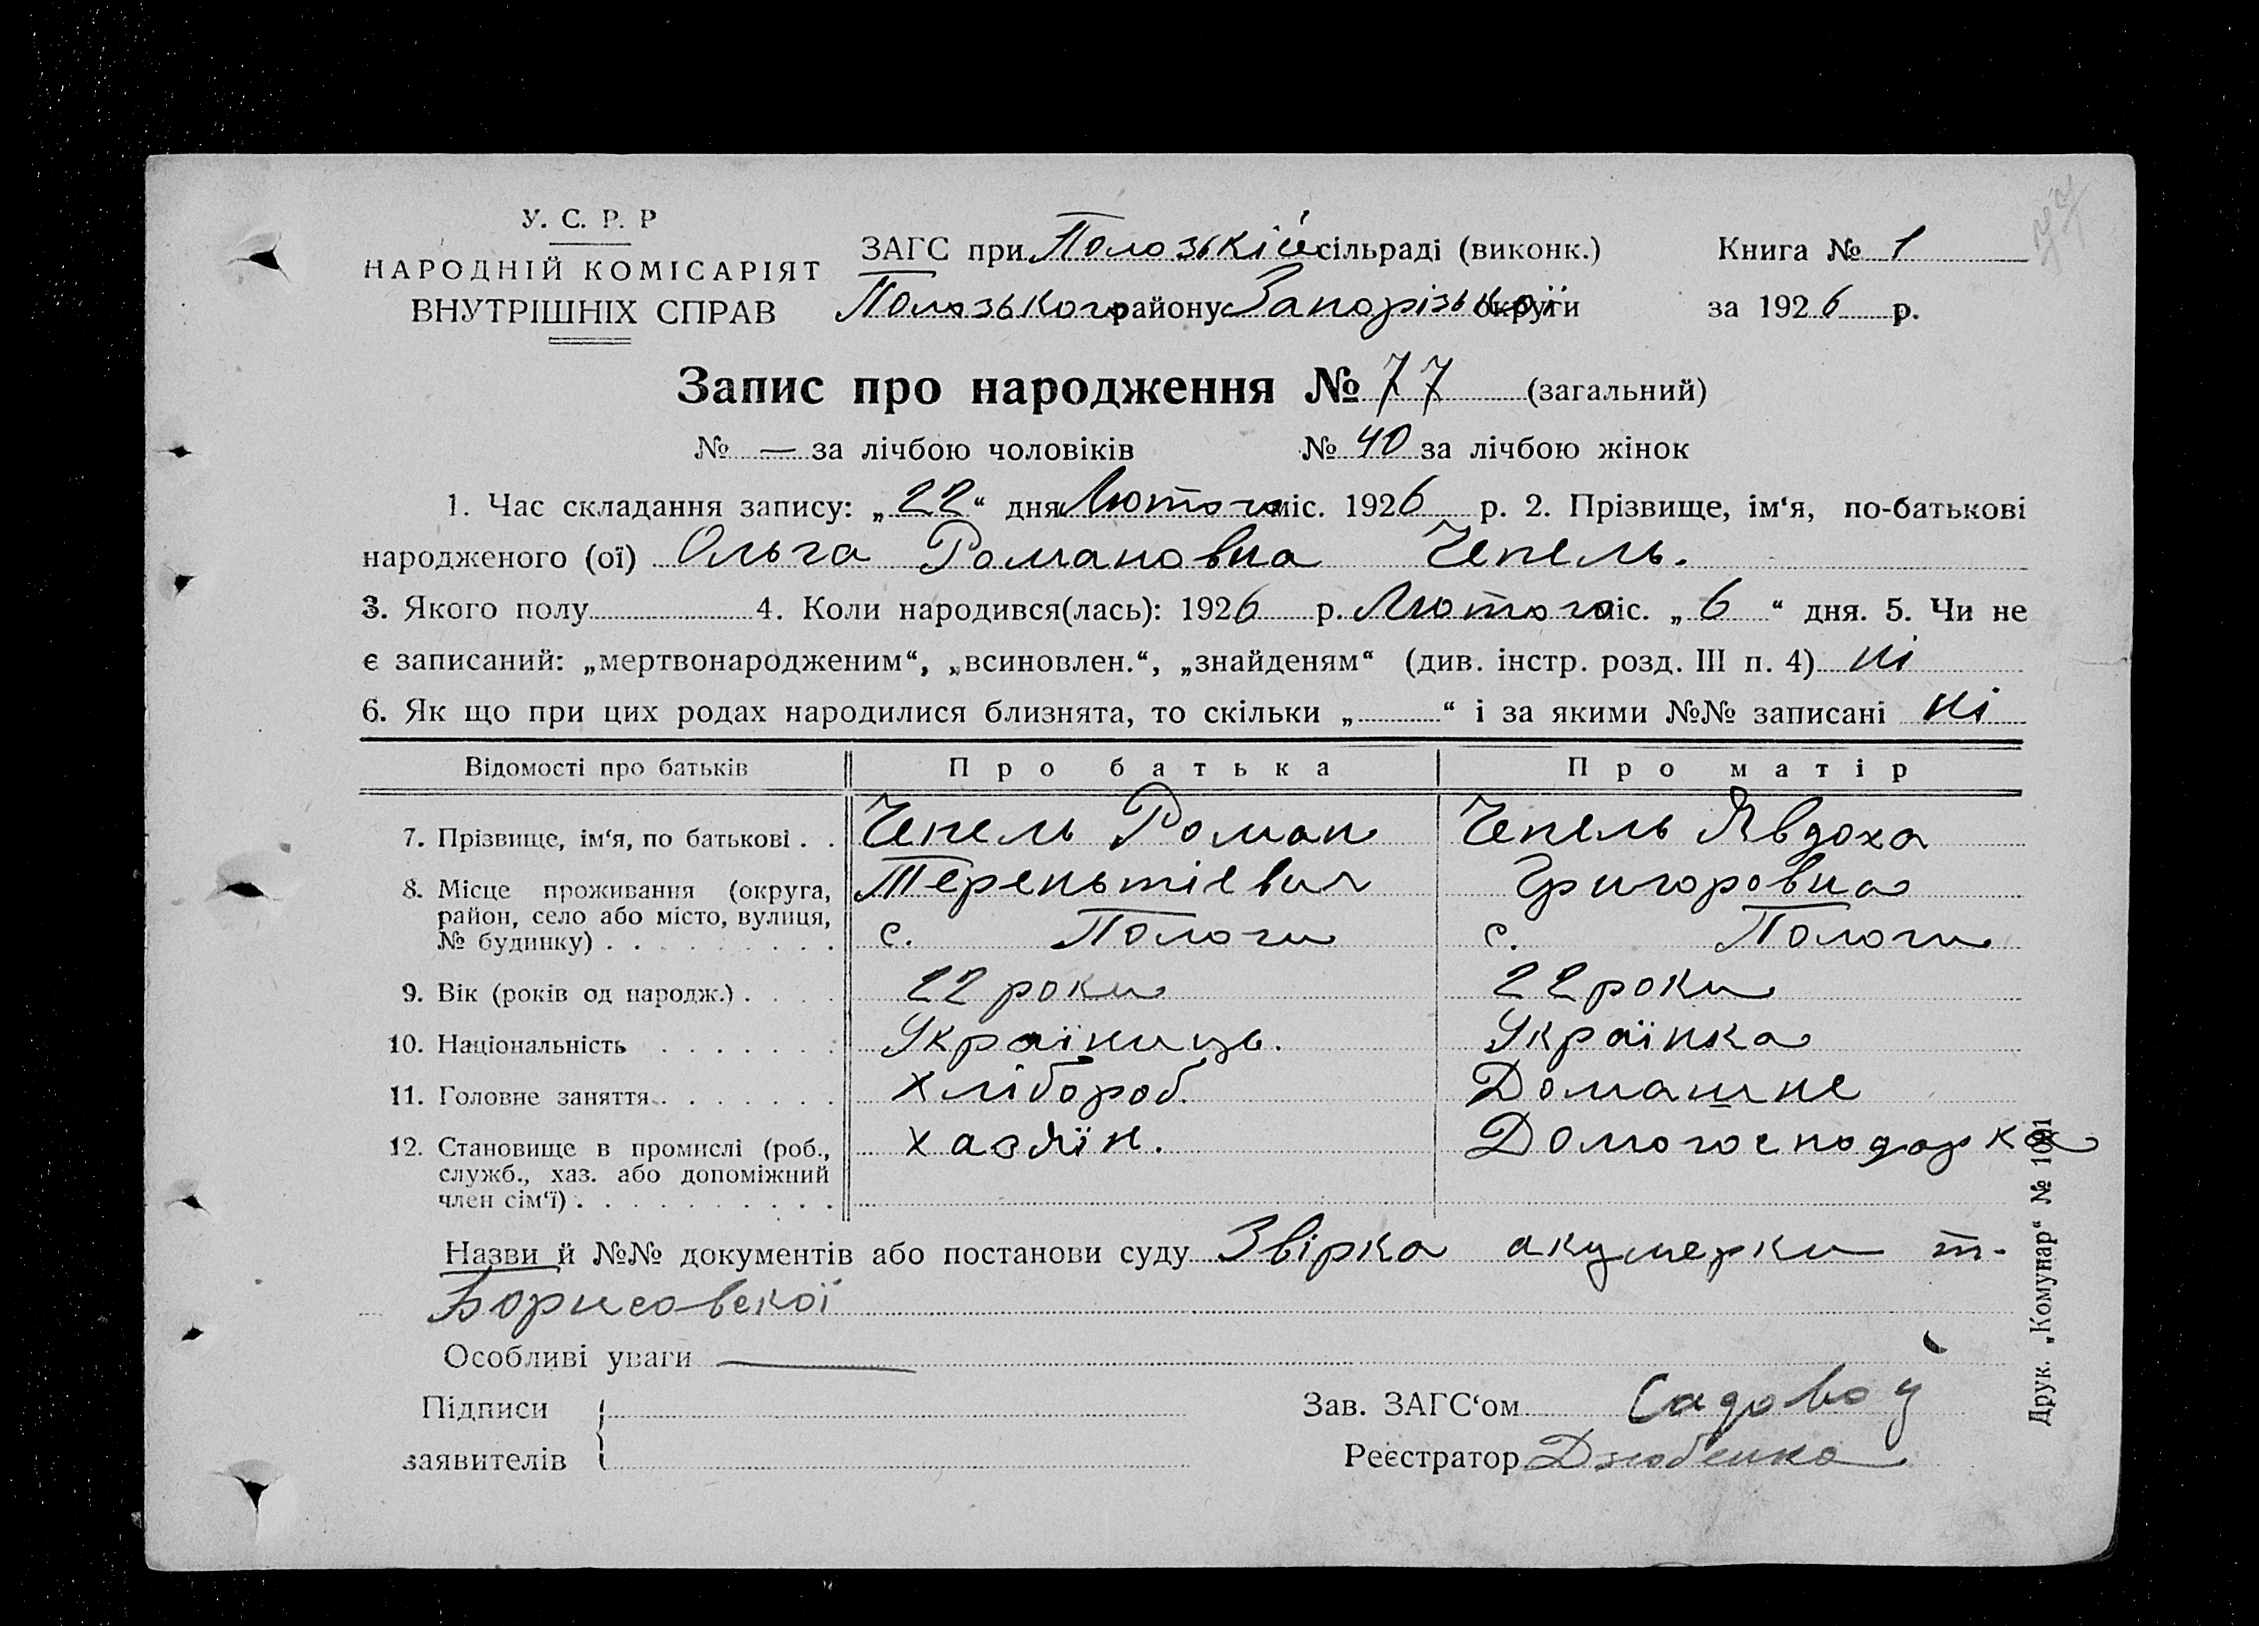 У. С. Р. Р
НАРОДНІЙ КОМІСАРІЯТ
ВНУТРІШНІХ СПРАВ
ЗАГС при Полозькій сільраді (виконк.)
Полозького району Запорізької округи
Книга № 1
за 1926 р.
77
Запис про народження № 77 (загальний)
№ — за лічбою чоловіків № 40 за лічбою жінок
1. Час складання запису: „22“ дня Лютого міс. 1926 р. 2. Прізвище, ім‘я, по-батькові
народженого (ої) Ольга Романовна Чепель.
3. Якого полу 4. Коли народився(лась): 1926 р. Лютого міс. „6“ дня. 5. Чи не
є записаний: „мертвонародженим“, „всиновлен.“, „знайденям“ (див. інстр. розд. III п. 4) ні
6. Як що при цих родах народилися близнята, то скільки „ “ і за якими №№ записані ні
Відомості про батьків Про батька Про матір
7. Прізвище, ім‘я, по батькові . . Чепель Роман Чепель Явдоха
Терентьтієвич Григоровна
8. Місце проживання (округа,
район, село або місто, вулиця,
№ будинку) . . . . . . . . . с. Пологи с. Пологи
9. Вік (років од народж.) . . . . 22 роки 22 роки
10. Національність . . . . . . . Українець. Українка
11. Головне заняття . . . . . . . хлібороб. Домашнє
12. Становище в промислі (роб., хазяїн. Домогосподарка
служб., хаз. або допоміжний
член сім‘ї) . . . . . . . . . .
Назви й №№ документів або постанови суду Звірка акушерки т.
Борисовскої
Особливі уваги —
Підписи
заявителів
Зав. ЗАГС‘ом Садовой
Реєстратор Дзюбенко
Друк. „Комунар“ № 1091